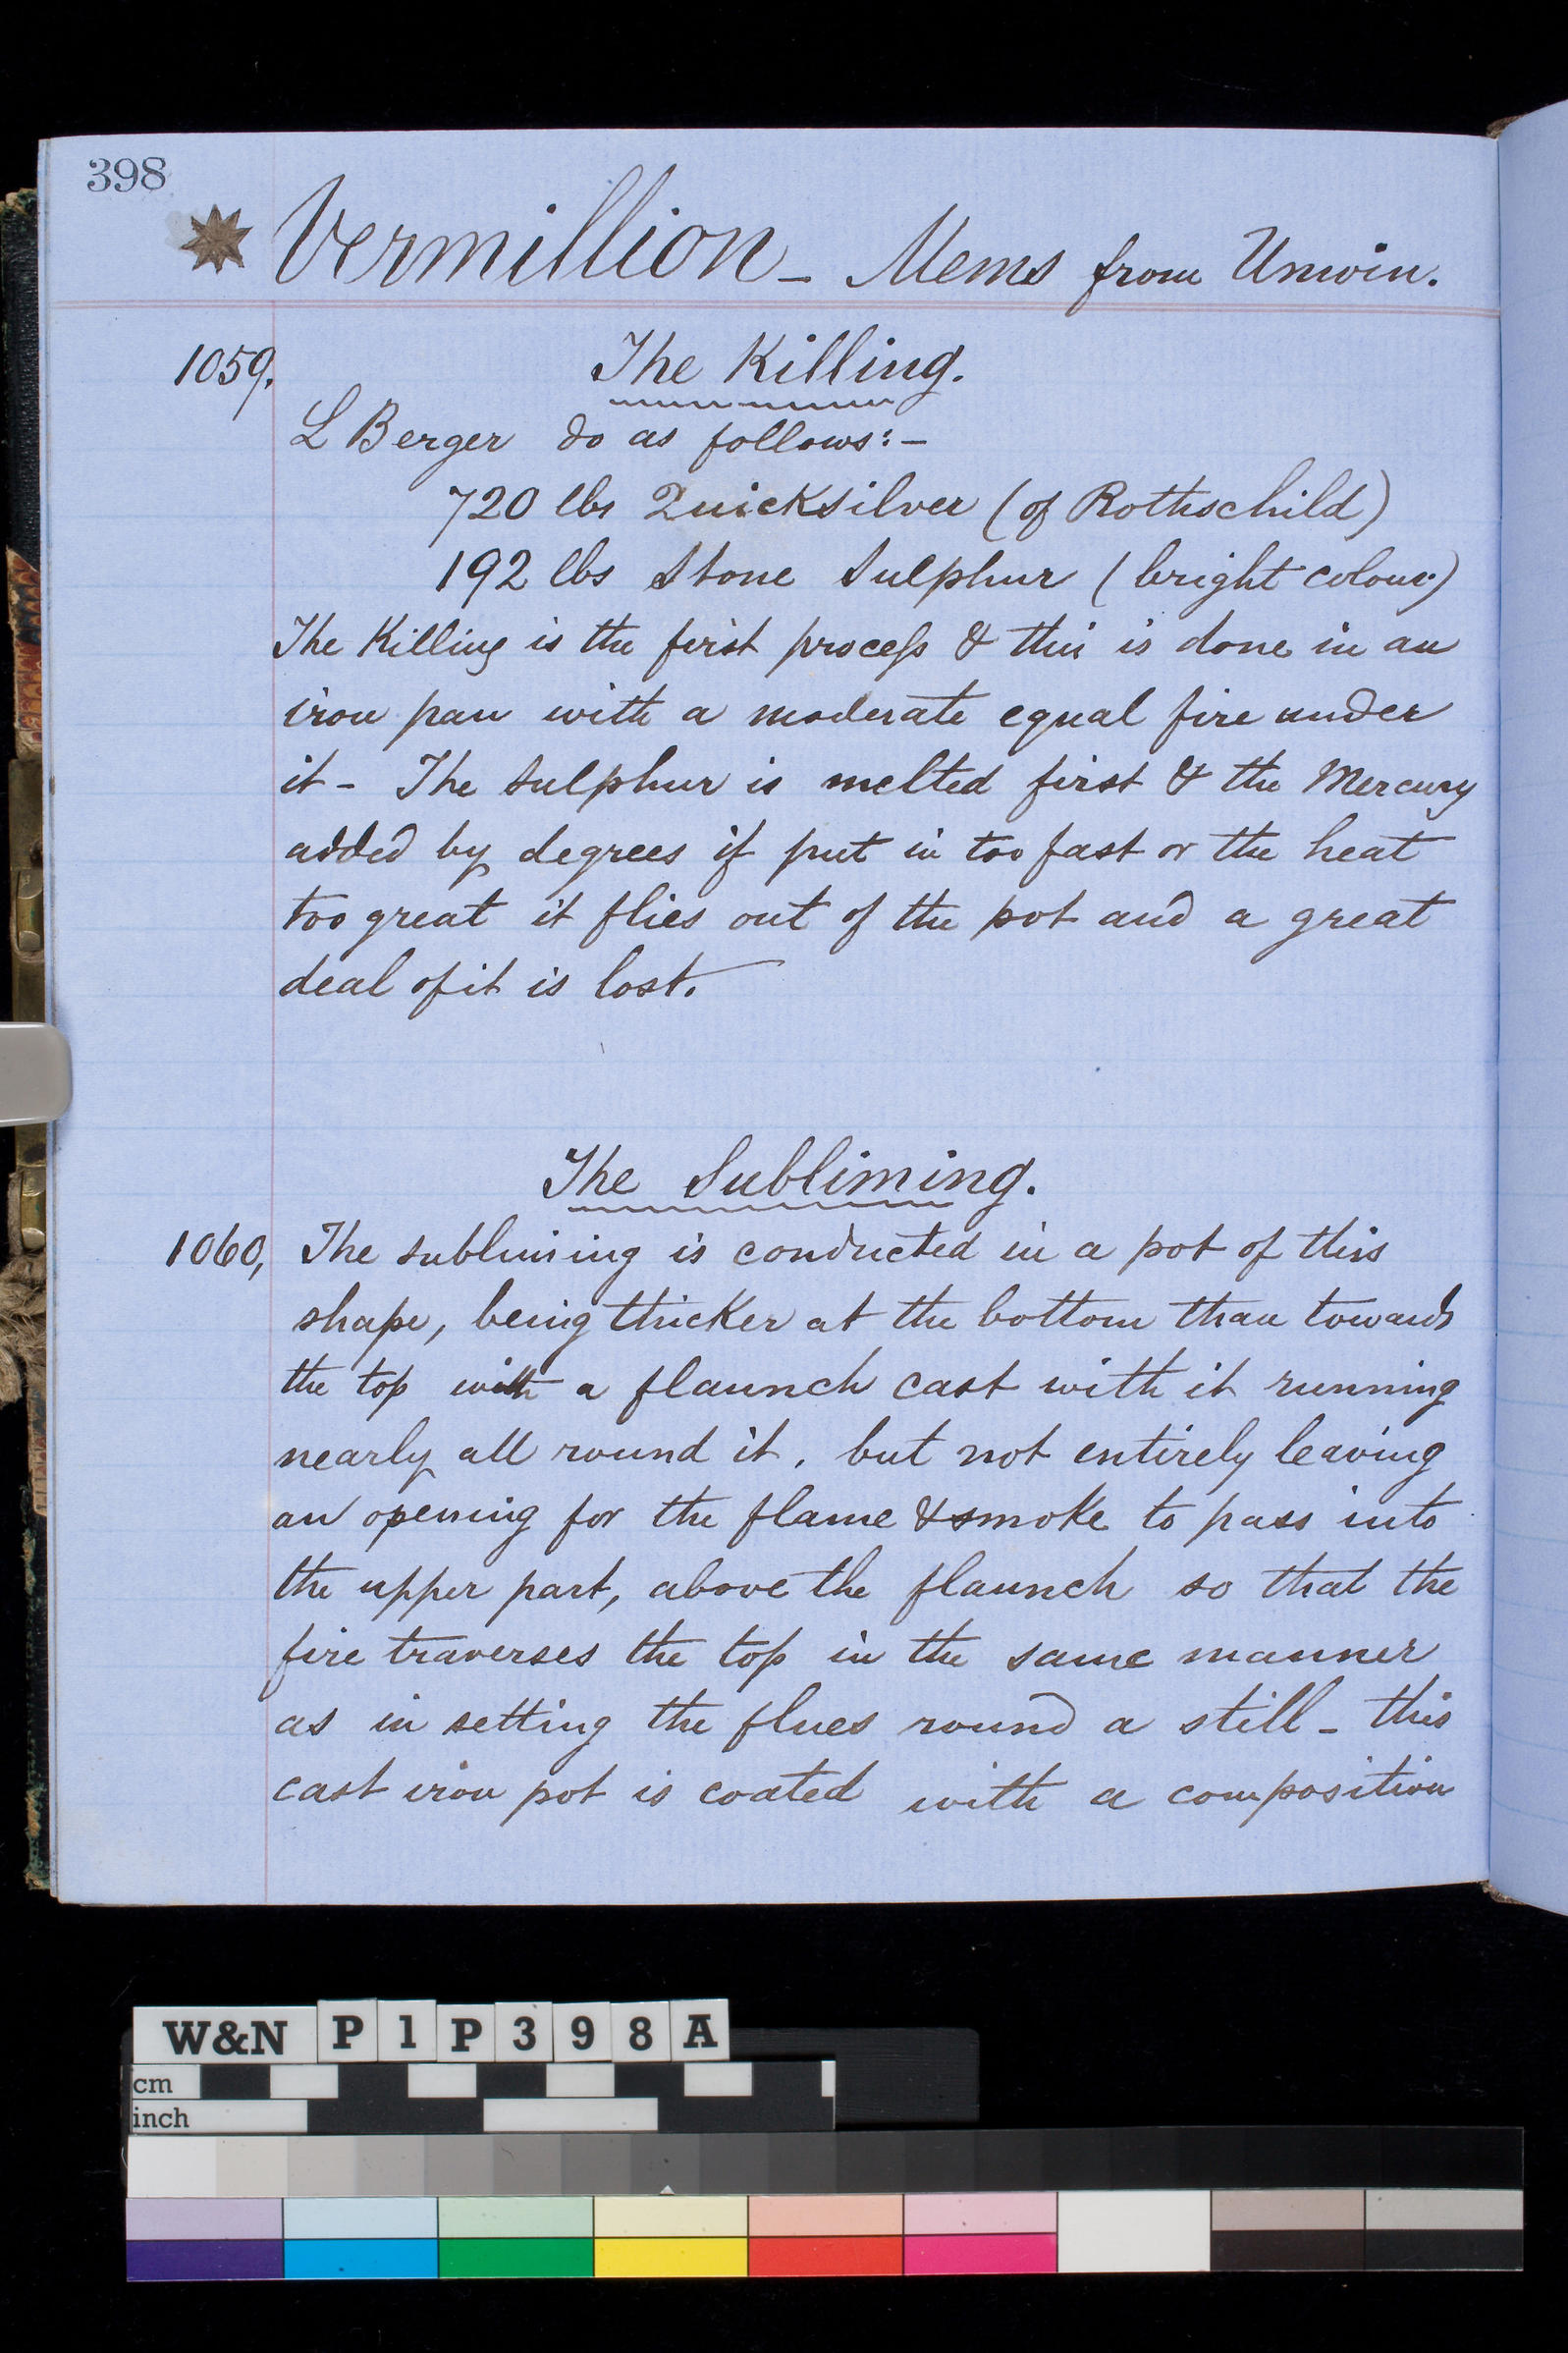 398
Vermillion - Mems from Unwin.
1059. The Killing.
L Berger do as follows:-
720 lbs Quicksilver (of Rothschild)
192 lbs Stone Sulphur (bright colour)
The Killing is the first process & this is done in an
iron pan with a moderate equal fire under
it - The sulphur is melted first & the Mercury
added by degrees if put in too fast or the heat
too great it flies out of the pot and a great
deal of it is lost.
The Subliming.
1060, The subliming is conducted in a pot of this
shape, being thicker at the bottom than towards
the top with a flaunch cast with it running
nearly all round it, but not entirely leaving
an opening for the flame & smoke to pass into
the upper part, above the flaunch so that the
fire traverses the top in the same manner
as in setting the flues round a still - this
cast iron pot is coated with a composition
W&N P1P398A
cm
inch